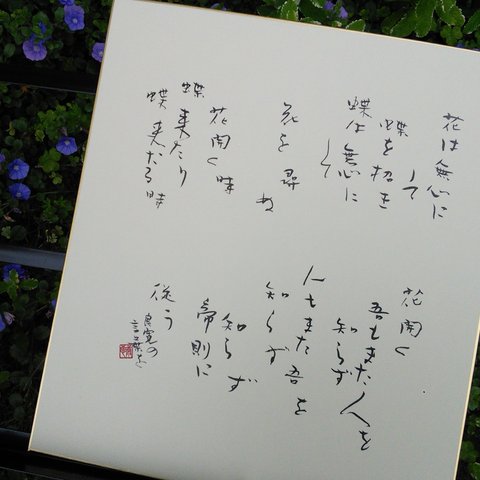 花は無心に
して
蝶を招き
蝶は無心に
して
花を尋
ぬ
花開く時
蝶来たり
蝶来たる時
花開く
吾もまた人を
知らず
人もまた吾を
知らず
知らず
帝則に
従う
良寛の
言葉